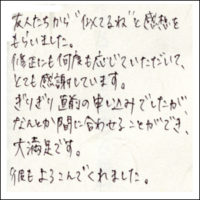 友人たちから“似てるね”と感想を
もらいました。
修正にも何度も応じていただいて、
とても感謝しています。
ぎりぎり直前の申し込みでしたが、
なんとか間に合わせることができ、
大満足です。
彼もよろこんでくれました。